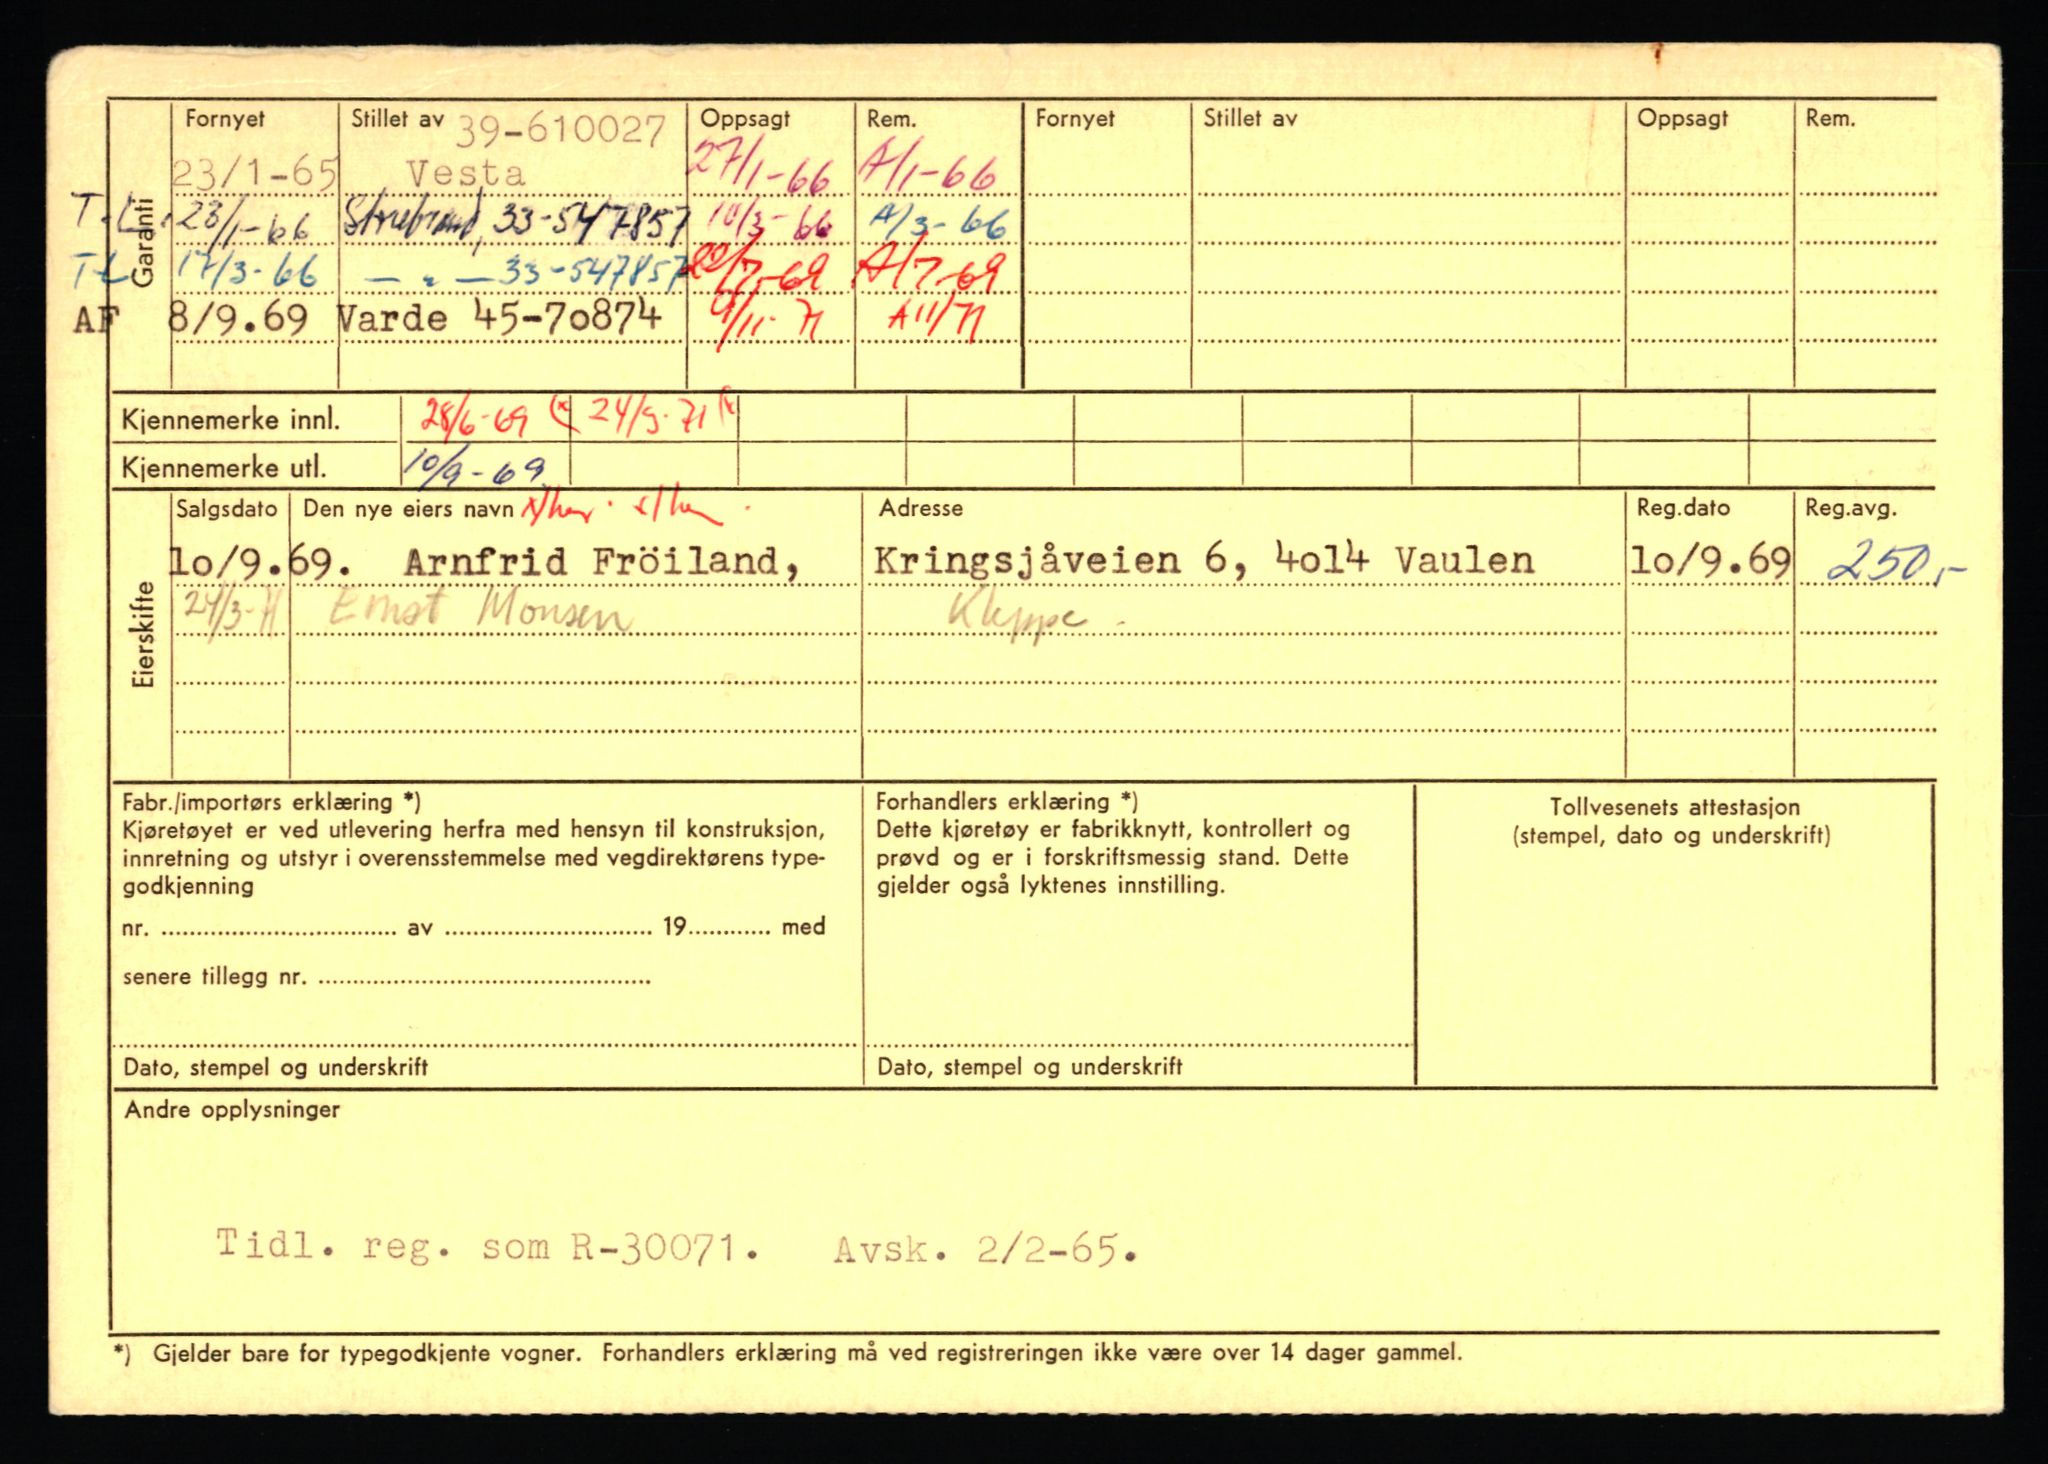 Fornyet Stillet av 39-610027 Oppsagt Rem. Fornyet Stillet av Oppsagt Rem.
23/1-65 Vesta 27/1-66 A/1-66
Garanti
T.L. 28/1-66 Storebrand, 33-547857 10/3-66 A/3-66
TL 17/3-66 — " — 33-547857 22/7-69 A/7-69
AF 8/9.69 Varde 45-7o874 9/11-71 A11/71
Kjennemerke innl. 28/6-69 (x 24/3-71 (x
Kjennemerke utl. 10/9-69
Salgsdato Den nye eiers navn Adresse Reg.dato Reg.avg.
Eierskifte
lo/9.69. Arnfrid Fröiland, Kringsjåveien 6, 4ol4 Vaulen lo/9.69 250,-
24/3-71 Ernst Monsen Kleppe
Fabr./importørs erklæring *)
Kjøretøyet er ved utlevering herfra med hensyn til konstruksjon,
innretning og utstyr i overensstemmelse med vegdirektørens type-
godkjenning
nr. ........ av ........ 19........ med
senere tillegg nr. ........
Dato, stempel og underskrift
Forhandlers erklæring *)
Dette kjøretøy er fabrikknytt, kontrollert og
prøvd og er i forskriftsmessig stand. Dette
gjelder også lyktenes innstilling.
Dato, stempel og underskrift
Tollvesenets attestasjon
(stempel, dato og underskrift)
Andre opplysninger
Tidl. reg. som R-30071. Avsk. 2/2-65.
*) Gjelder bare for typegodkjente vogner. Forhandlers erklæring må ved registreringen ikke være over 14 dager gammel.